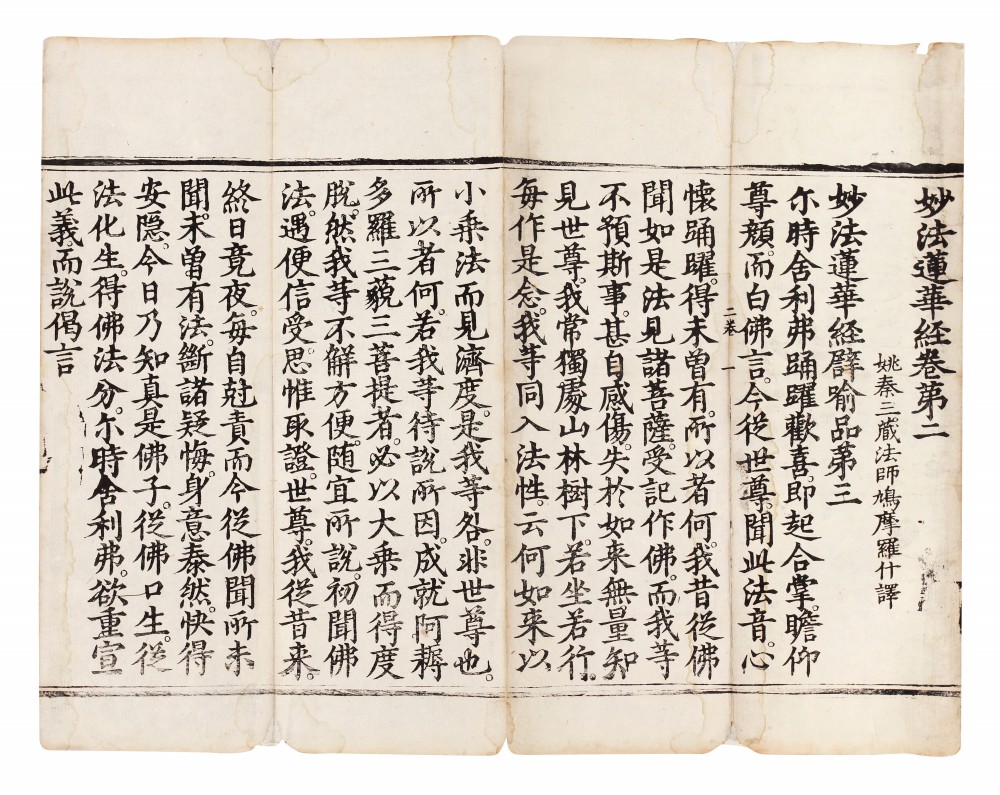 妙法蓮華經卷第二
姚秦三蔵法師鳩摩羅什譯
妙法蓮華經譬喻品第三
尒時舍利弗踊躍歡喜。即起合掌。瞻仰
尊顔。而白佛言。今從世尊。聞此法音。心
二卷 一
懷踊躍。得未曽有。所以者何。我昔從佛
聞如是法。見諸菩薩。受記作佛。而我等
不預斯事。甚自感傷。失於如來無量知
見。世尊。我常獨處山林樹下。若坐若行。
毎作是念。我等同入法性。云何如來以
小乗法而見濟度。是我等咎。非世尊也。
所以者何。若我等待說所因。成就阿耨
多羅三藐三菩提者。必以大乗而得度
脫。然我等不解方便。随宜所說。初聞佛
法。遇便信受。思惟取證。世尊。我從昔来。
終日竟夜。毎自尅責。而今從佛聞所未
聞。未曽有法。斷諸疑悔。身意泰然。快得
安隱。今日乃知真是佛子。從佛口生。從
法化生。得佛法分。尒時舍利弗。欲重宣
此義而說偈言